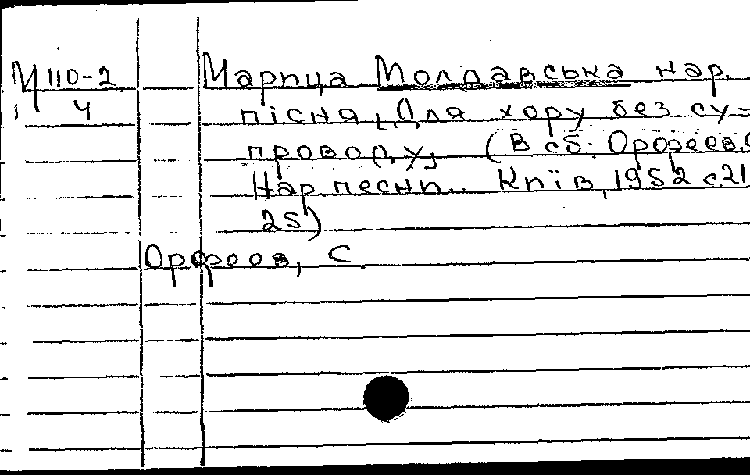 М 110-2
4
Марица Молдавська нар.
пісня, Для хору без су=
проводу, (В сб: Орфеев, С
Нар. песни.. Київ, 1952 с.21
25)
Орфеев, С.